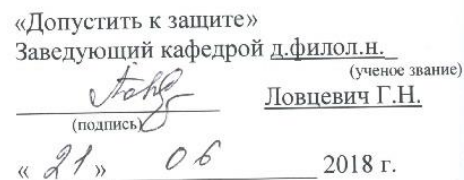 «Допустить к защите»
Заведующий кафедрой д.филол.н.
(ученое звание)
Ловцевич Г.Н.
(подпись)
« 21 » 06 2018 г.